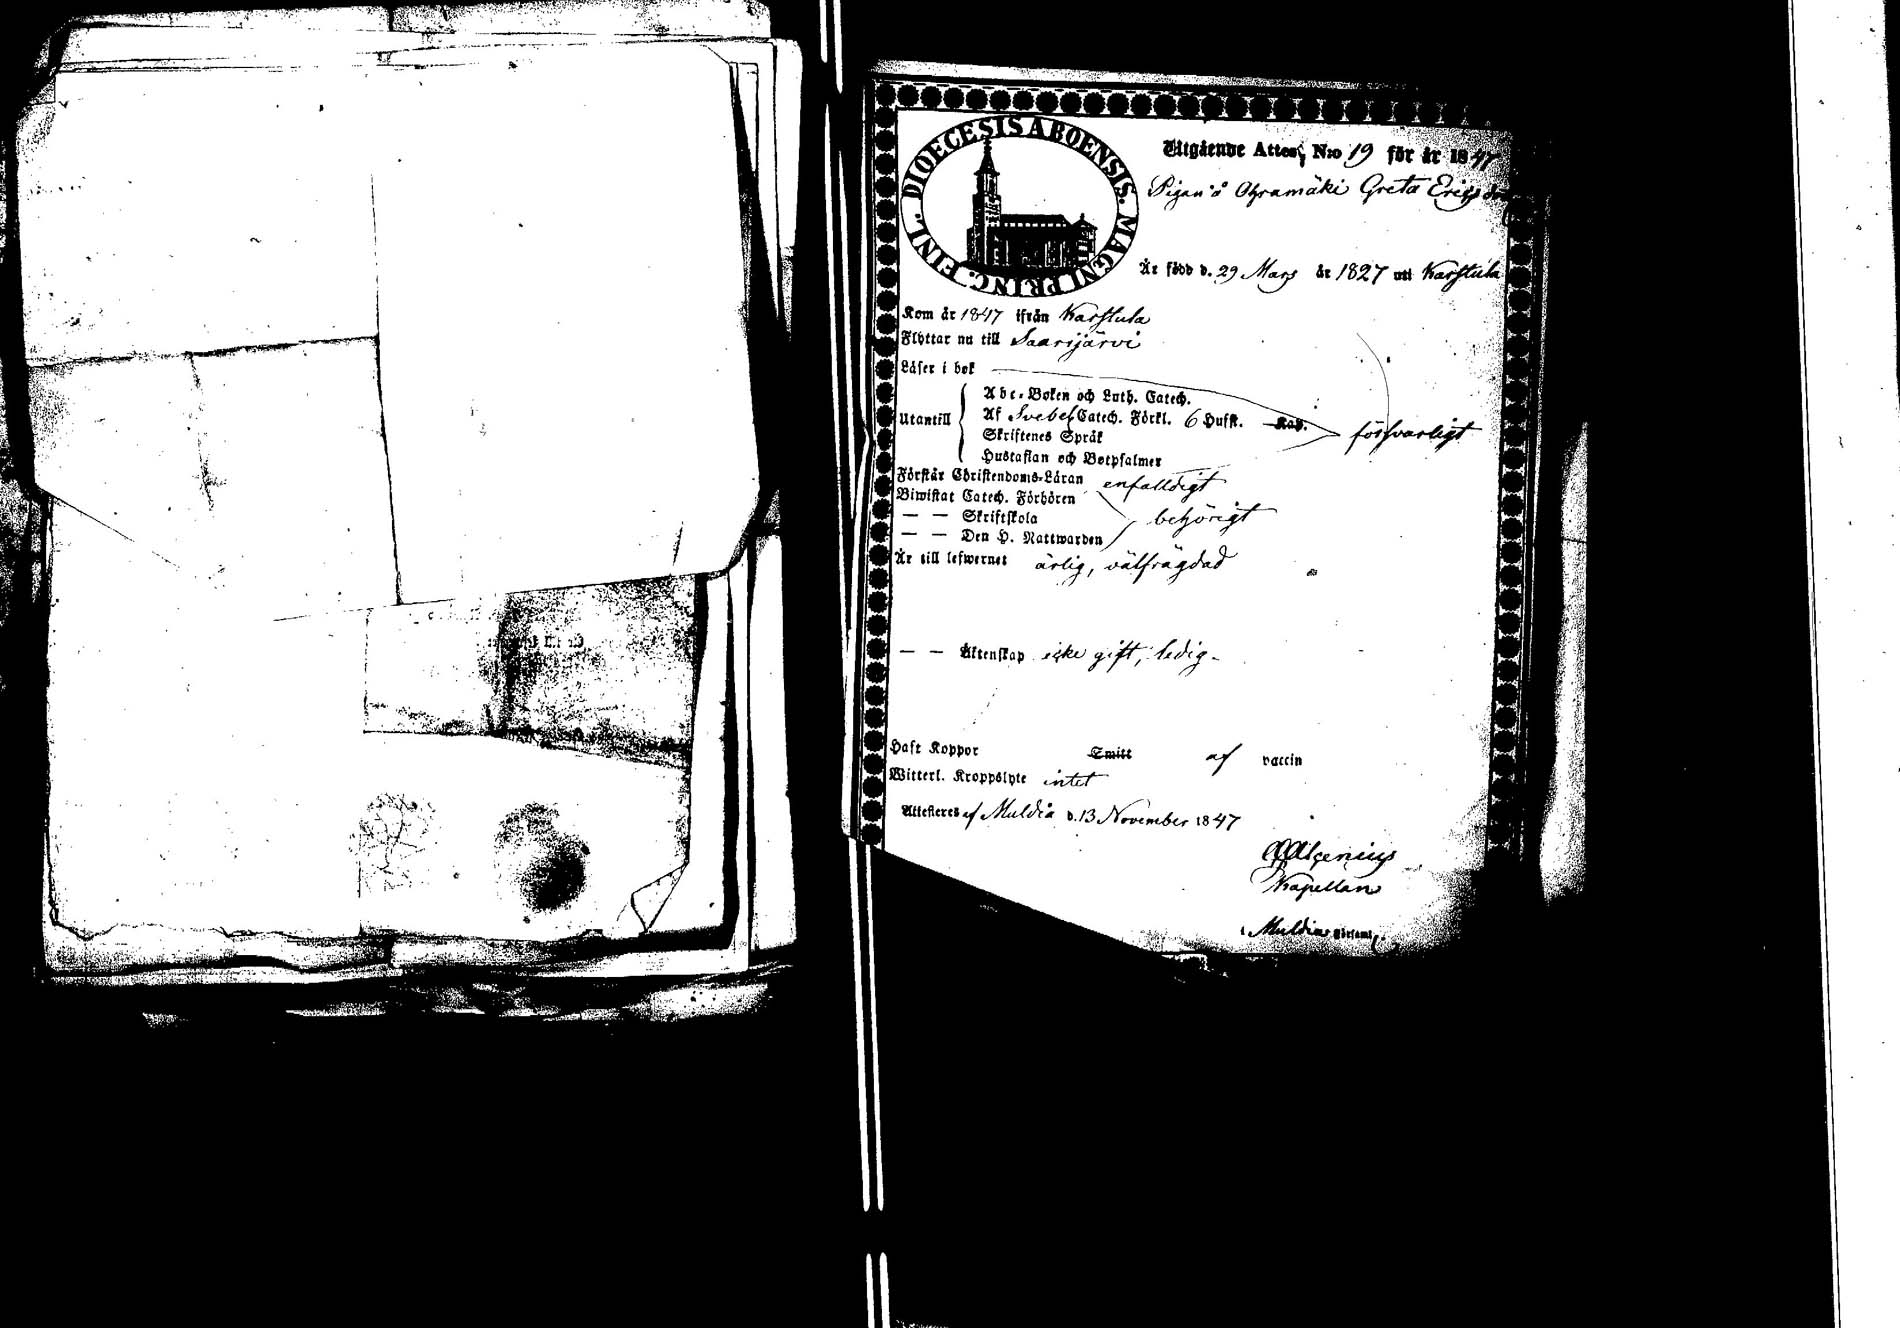 DIOECESIS ABOENSIS. MAGNI PRINC. FINL.
Utgående Attest N:o 19 för år 1847
Pigan å Ohramäki Greta Ericsdr
Är född d. 29 Mars år 1827 uti Karstula
Kom år 1847 ifrån Karstula
Flyttar nu till Saarijärvi
Läser i bok
Abc-Boken och Luth. Catech.
Utantill Af Svebel. Catech. Förkl. 6 Hufst. Kap. försvarligt
Skriftenes Språk
Hustaflan och Botpsalmer
Förstår Christendoms-Läran enfaldigt
Biwistat Catech. Förhören
— — Skriftskola behörigt
— — Den H. Nattwarden
Är till lefwernet ärlig, välfrägdad
— — Äktenskap icke gift, ledig.
Haft Koppor Smitt af vaccin
Witterl. Kroppslyte intet
Attesteres af Muldia d. 13 November 1847
Kapellan
i Muldia Församl.